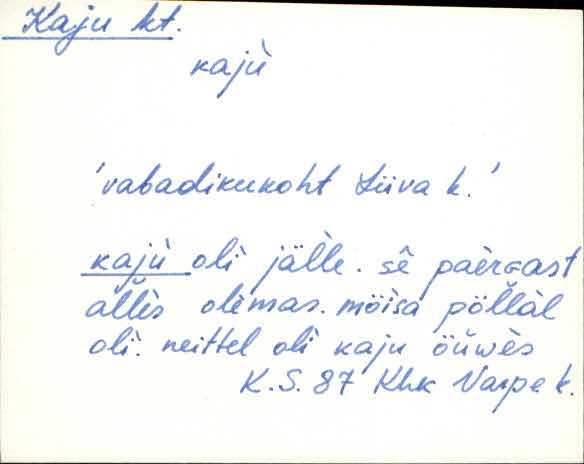 Kaju kt.
kajù
'vabadikukoht Liiva k.'
kajù oli jälle. sê paèrgast
àllès olèmas. mòisa põllàl
oli. neittel oli kaju öùwès
K.S. 87 Khk Varpe k.